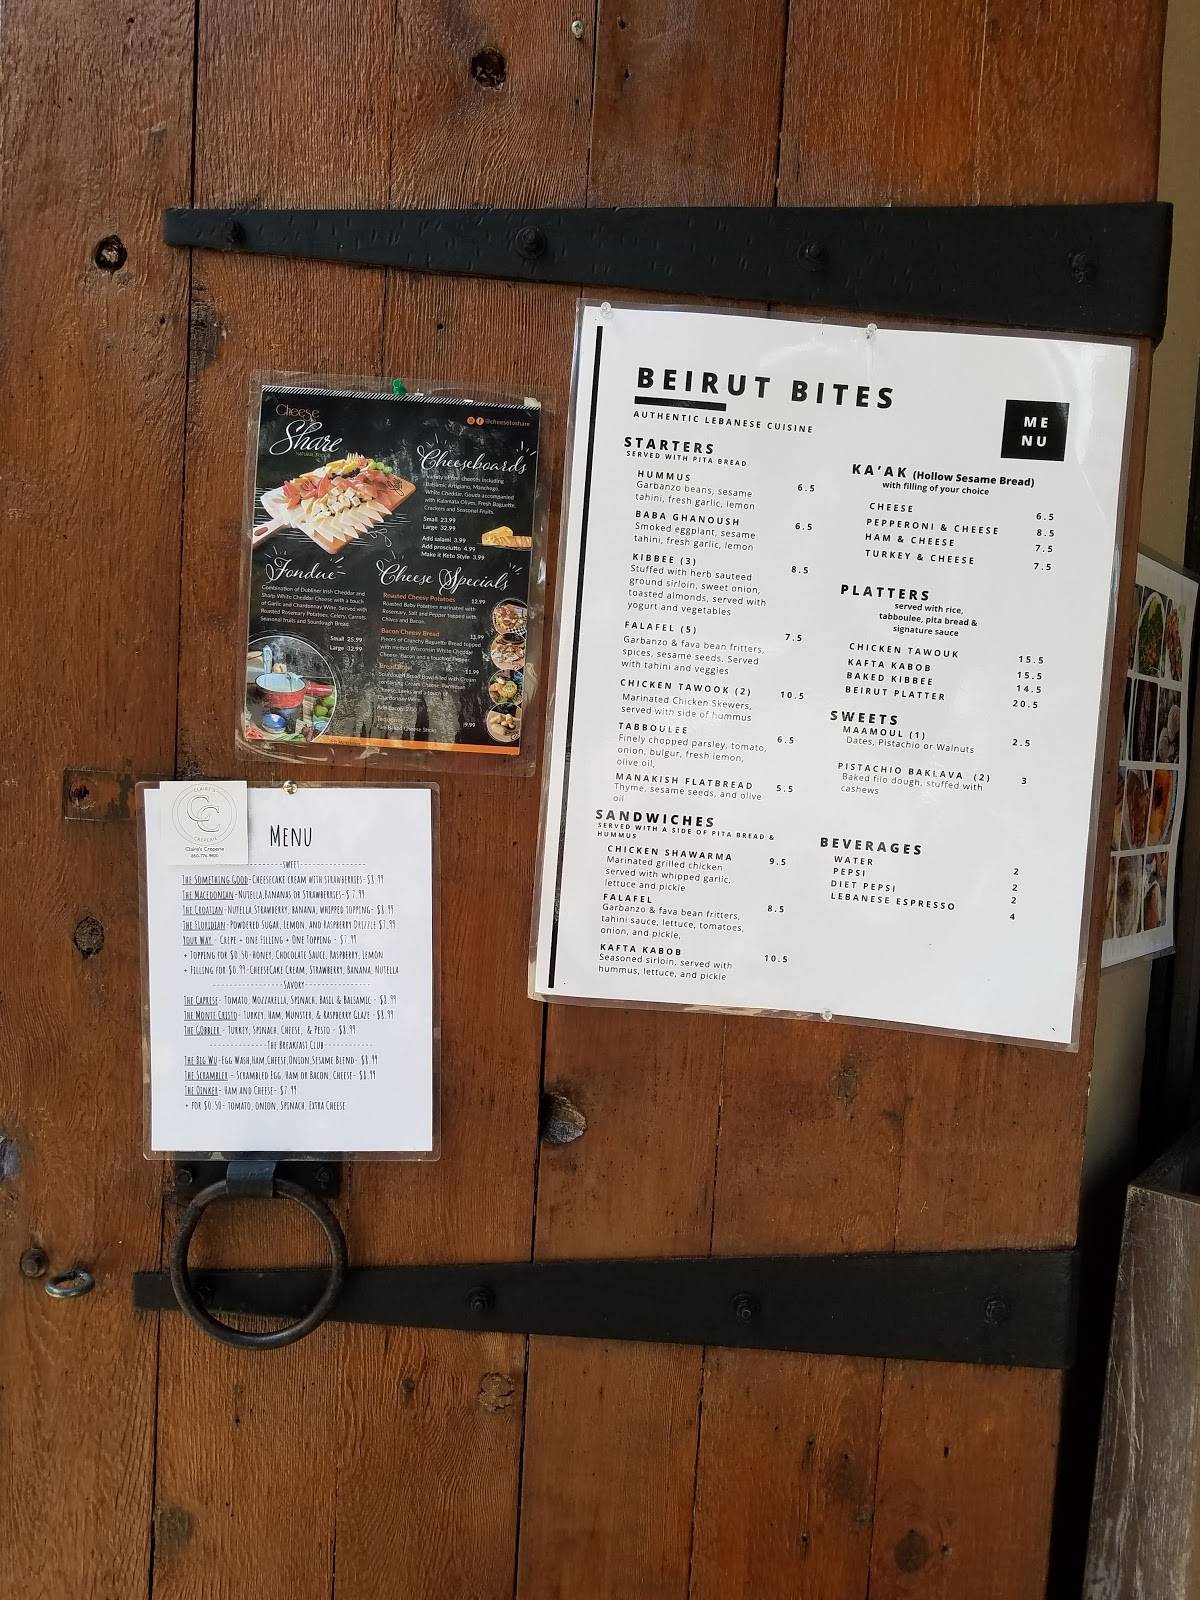 Cheese
Share
@cheesetoshare
Cheeseboards
Variety of fine cheeses including
Balsamic Artigiano, Manchego,
White Cheddar, Gouda accompanied
with Kalamata Olives, Fresh Baguette,
Crackers and Seasonal Fruits.
Small 23.99
Large 32.99
Add salami 3.99
Add prosciutto 4.99
Make it Keto Style 3.99
Fondue
Combination of Dubliner Irish Cheddar and
Sharp White Cheddar Cheese with a touch
of Garlic and Chardonnay Wine, Served with
Roasted Rosemary Potatoes, Celery, Carrots,
Seasonal fruits and Sourdough Bread.
Small 25.99
Large 32.99
Cheese Specials
Roasted Cheesy Potatoes 12.99
Roasted Baby Potatoes marinated with
Rosemary, Salt and Pepper topped with
Chives and Bacon.
Bacon Cheesy Bread 13.99
Pieces of Crunchy Baguette Bread topped
with melted Wisconsin White Cheddar
Cheese, Bacon and a touch of Pepper.
Bread Bowl 11.99
Sourdough Bread Bowl filled with Cream
containing Cream Cheese, Parmesan
Cheese, Leeks and a touch of
Chardonnay Wine.
Add Bacon
Tequeños 9.99
Baked Cheese Sticks
CLAIRE'S
CC
CREPERIE
Claire's Creperie
850-776-9800
Menu
Sweet
The Something Good-Cheesecake cream with strawberries-$8.99
The Macedonian-Nutella,Bananas or Strawberries-$ 7.99
The Croatian-Nutella,Strawberry, banana, whipped topping- $8.99
The Floridian-Powdered Sugar, Lemon, and Raspberry Drizzle $7.99
Your Way - Crepe + one Filling + One Topping - $7.99
+ Topping for $0.50-Honey, Chocolate Sauce, Raspberry, Lemon
+ Filling for $0.99-CheeseCake Cream, Strawberry, Banana, Nutella
Savory
The Caprese- Tomato, Mozzarella, Spinach, Basil & Balsamic - $8.99
The Monte Cristo- Turkey, Ham, Munster, & Raspberry Glaze - $8.99
The Gobbler - Turkey, Spinach, Cheese, & Pesto - $8.99
The Breakfast Club
The Big Wu-Egg Wash,Ham,Cheese,Onion,Sesame Blend- $8.99
The Scrambler - Scrambled Egg, Ham or Bacon, Cheese- $8.99
The Oinker- Ham and Cheese- $7.99
+ for $0.50- tomato, onion, Spinach, Extra Cheese
BEIRUT BITES
AUTHENTIC LEBANESE CUISINE
ME
NU
STARTERS
SERVED WITH PITA BREAD
HUMMUS 6.5
Garbanzo beans, sesame
tahini, fresh garlic, lemon
BABA GHANOUSH 6.5
Smoked eggplant, sesame
tahini, fresh garlic, lemon
KIBBEE (3) 8.5
Stuffed with herb sauteed
ground sirloin, sweet onion,
toasted almonds, served with
yogurt and vegetables
FALAFEL (5) 7.5
Garbanzo & fava bean fritters,
spices, sesame seeds. Served
with tahini and veggies
CHICKEN TAWOOK (2) 10.5
Marinated Chicken Skewers,
served with side of hummus
TABBOULEE 6.5
Finely chopped parsley, tomato,
onion, bulgur, fresh lemon,
olive oil,
MANAKISH FLATBREAD 5.5
Thyme, sesame seeds, and olive
oil
SANDWICHES
SERVED WITH A SIDE OF PITA BREAD &
HUMMUS
CHICKEN SHAWARMA 9.5
Marinated grilled chicken
served with whipped garlic,
lettuce and pickle
FALAFEL 8.5
Garbanzo & fava bean fritters,
tahini sauce, lettuce, tomatoes,
onion, and pickle,
KAFTA KABOB 10.5
Seasoned sirloin, served with
hummus, lettuce, and pickle
KA'AK (Hollow Sesame Bread)
with filling of your choice
CHEESE 6.5
PEPPERONI & CHEESE 8.5
HAM & CHEESE 7.5
TURKEY & CHEESE 7.5
PLATTERS
served with rice,
tabboulee, pita bread &
signature sauce
CHICKEN TAWOUK 15.5
KAFTA KABOB 15.5
BAKED KIBBEE 14.5
BEIRUT PLATTER 20.5
SWEETS
MAAMOUL (1) 2.5
Dates, Pistachio or Walnuts
PISTACHIO BAKLAVA (2) 3
Baked filo dough, stuffed with
cashews
BEVERAGES
WATER 2
PEPSI 2
DIET PEPSI 2
LEBANESE ESPRESSO 4